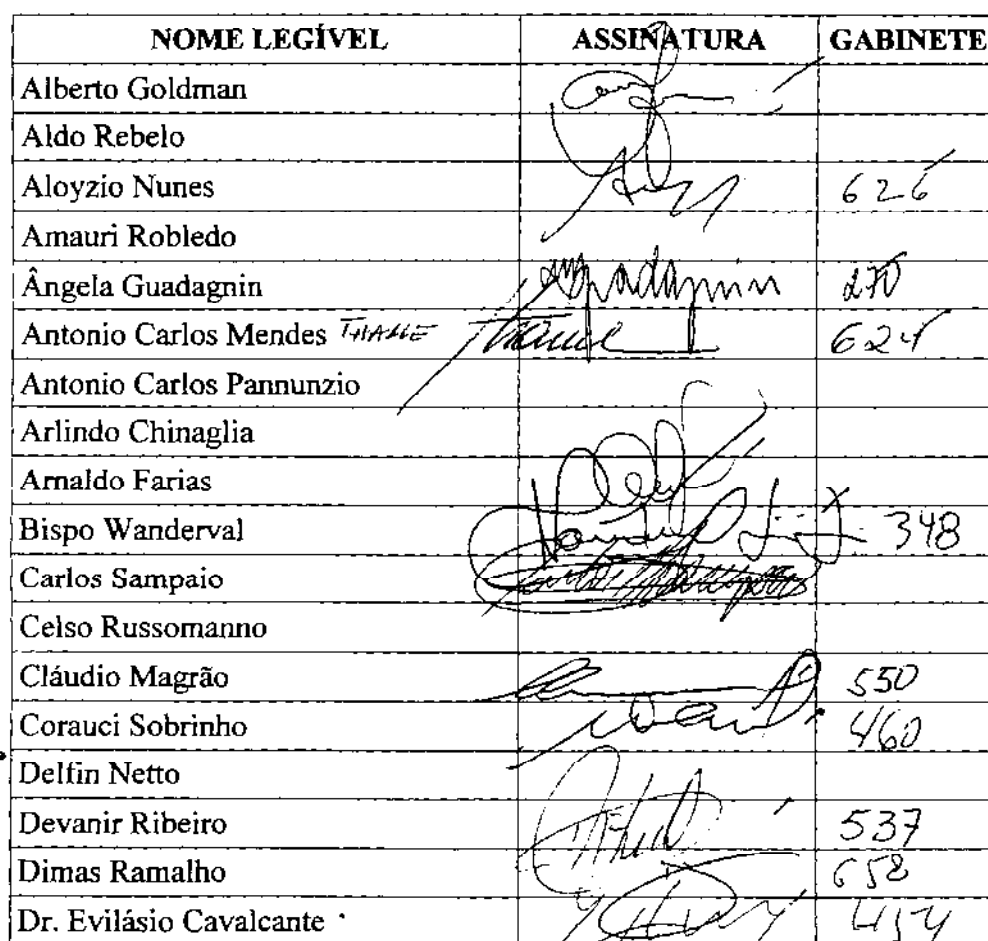 NOME LEGÍVEL ASSINATURA GABINETE
Alberto Goldman
Aldo Rebelo
Aloyzio Nunes 626
Amauri Robledo
Ângela Guadagnin Guadagnin 270
Antonio Carlos Mendes THAME Thame 624
Antonio Carlos Pannunzio
Arlindo Chinaglia
Arnaldo Farias
Bispo Wanderval 348
Carlos Sampaio Carlos Sampaio
Celso Russomanno
Cláudio Magrão 550
Corauci Sobrinho 460
Delfin Netto
Devanir Ribeiro 537
Dimas Ramalho 658
Dr. Evilásio Cavalcante 454